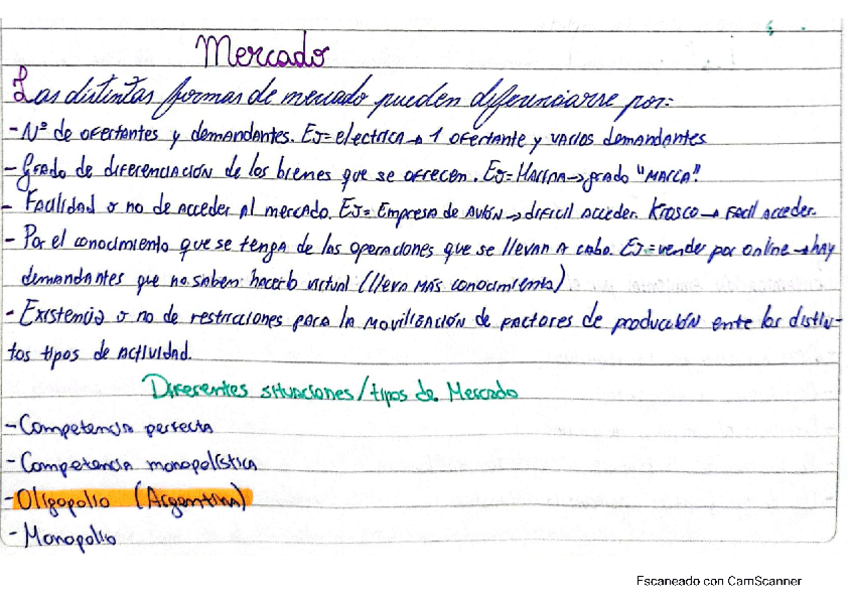 Mercado
Las distintas formas de mercado pueden diferenciarse por:
- Nº de ofertantes y demandantes. Ej= electrica → 1 ofertante y varios demandantes
- Grado de diferenciación de los bienes que se ofrecen. Ej= Harina → grado "marca".
- Facilidad o no de acceder al mercado. Ej= Empresa de avión → dificil acceder. Kiosco → Facil acceder.
- Por el conocimiento que se tenga de las operaciones que se llevan a cabo. Ej= vender por online → hay
demandantes que no saben hacerlo virtual (lleva más conocimiento).
- Existencia o no de restricciones para la movilización de factores de producción ente los distin-
tos tipos de actividad.
Diferentes situaciones/tipos de Mercado
- Competencia perfecta
- Competencia monopolística
- Oligopolio (Argentina)
- Monopolio
Escaneado con CamScanner